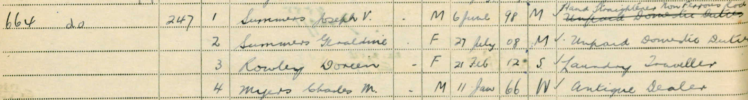 Hand Straightener Non Ferrous Rod
664 do 247 1 Summers Joseph V. - M 6 June 98 M Unpaid Domestic Duties
2 Summers Geraldine - F 27 July 08 M Unpaid Domestic Duties
3 Rowley Doreen - F 21 Feb 12 S Laundry Traveller
4 Myers Charles M. - M 11 Jan 66 W Antique Dealer